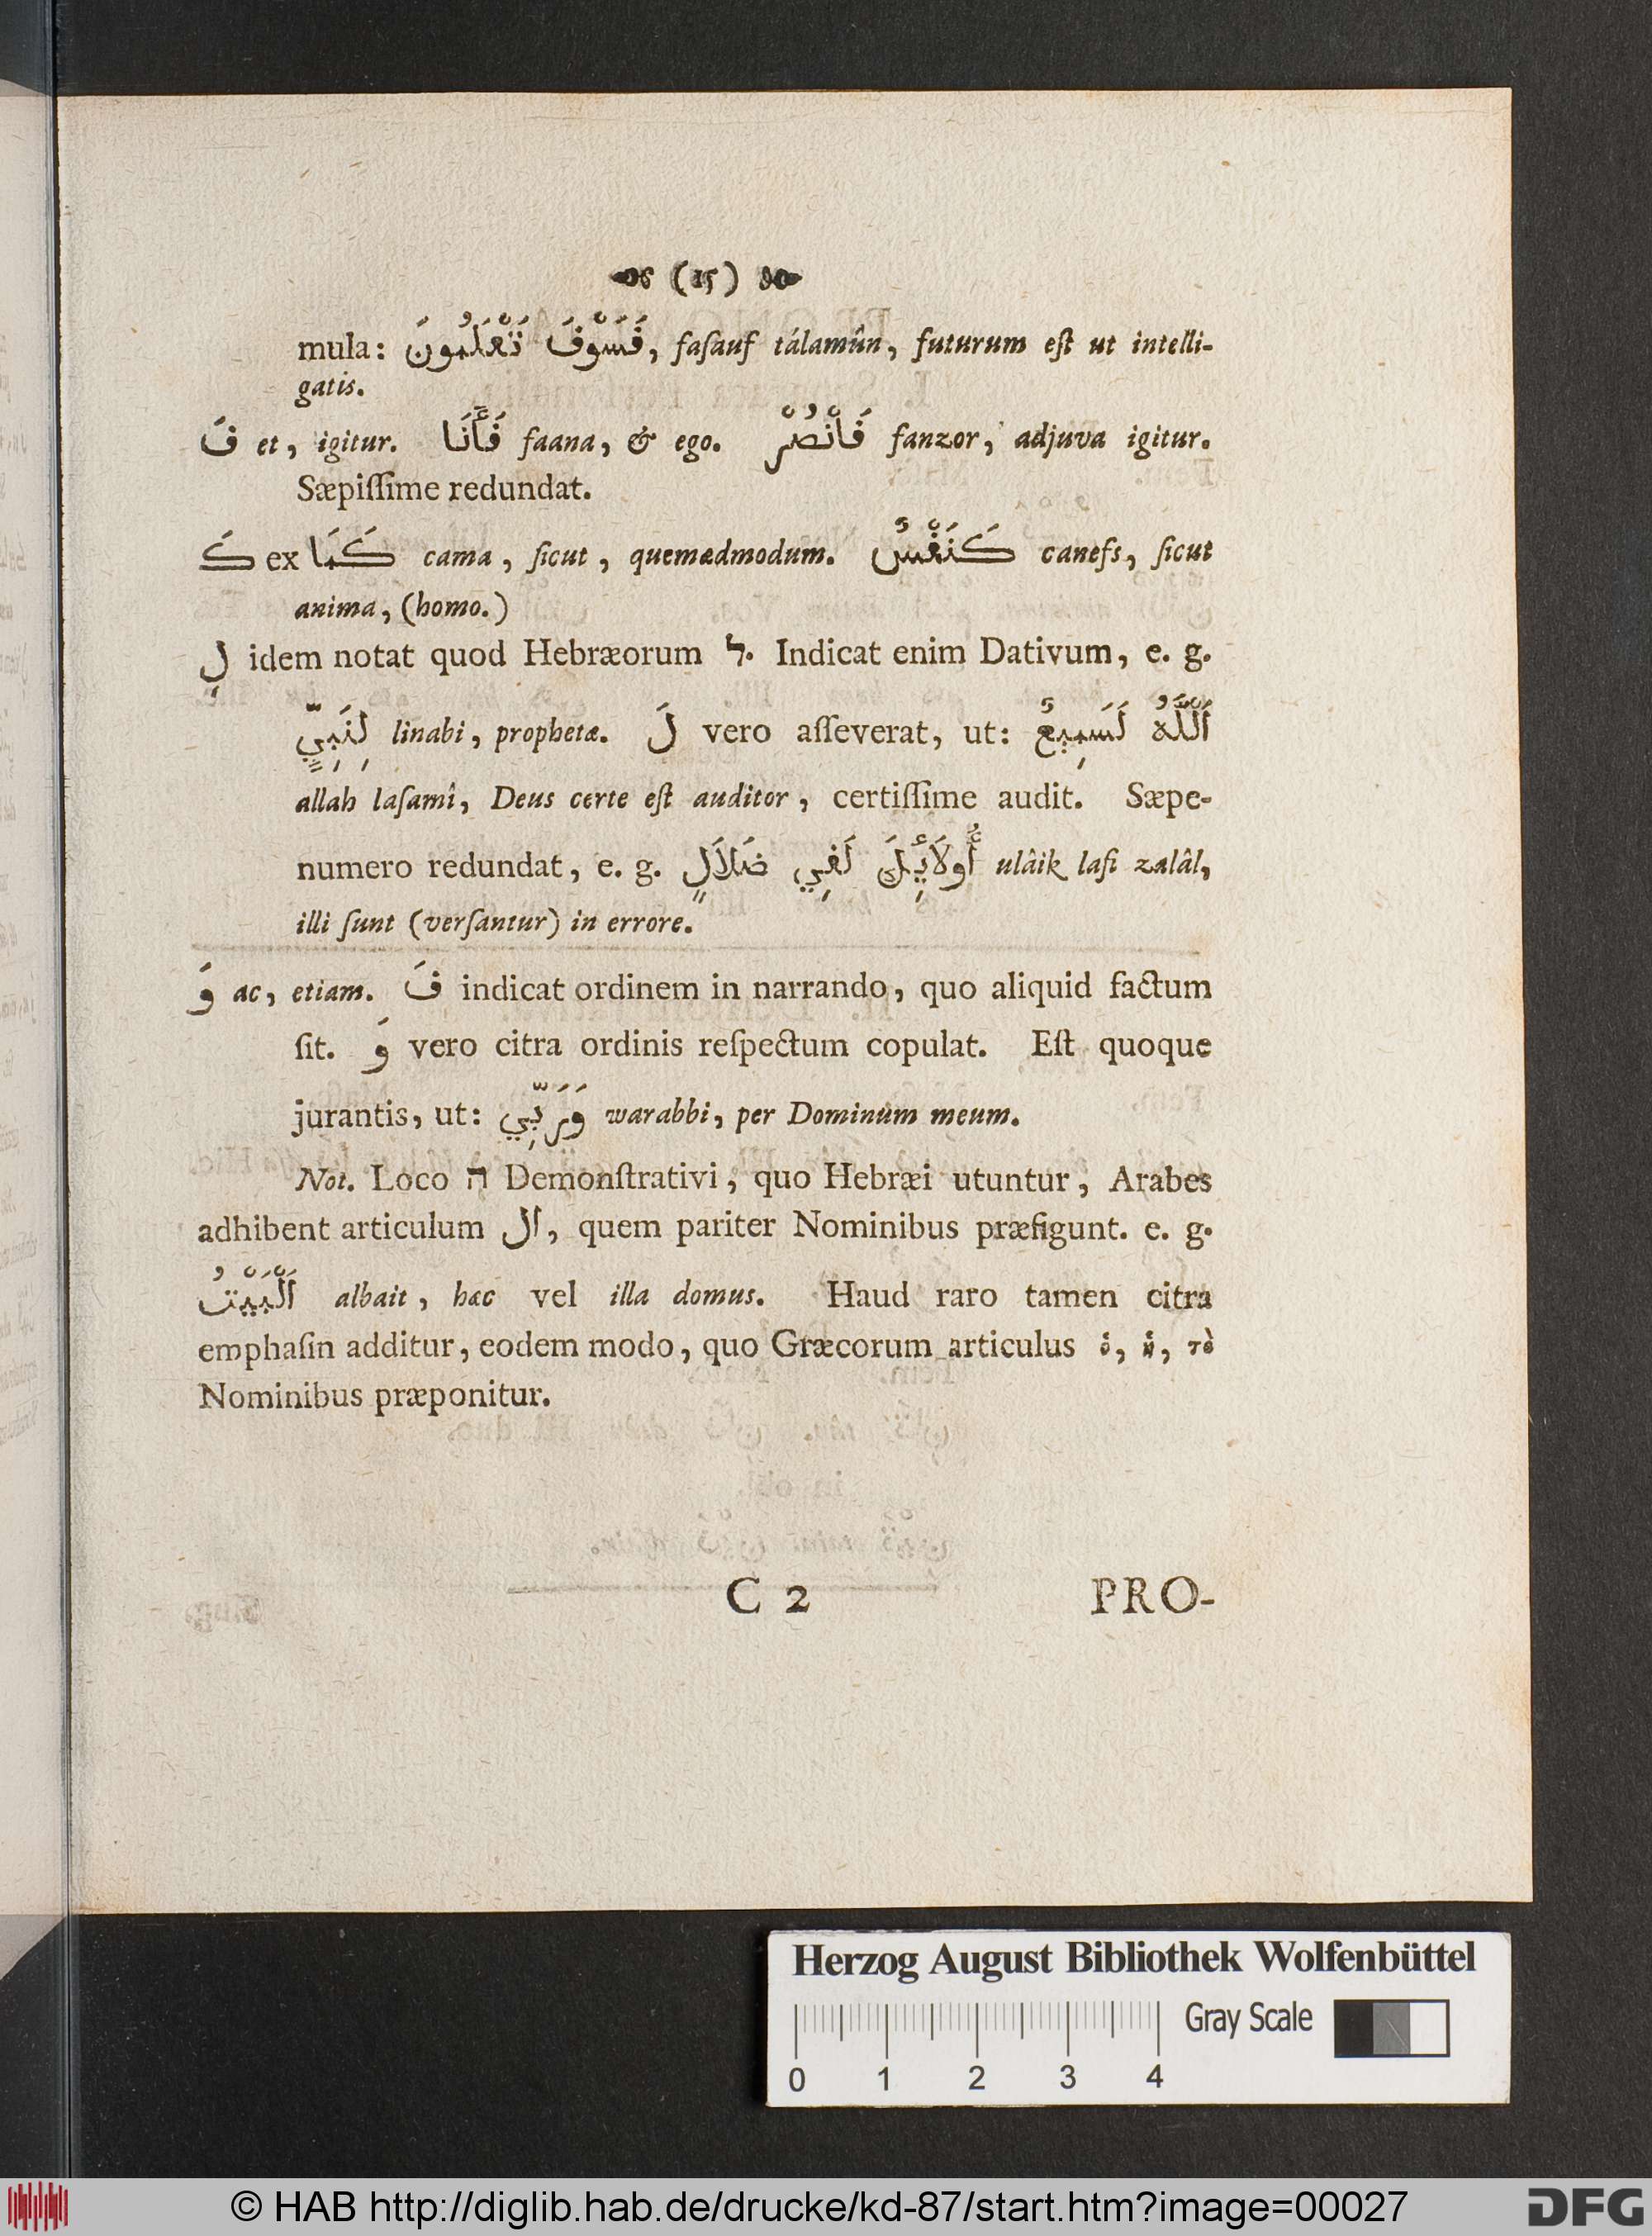 (15)
mula: فَسَوْفَ تَعْلَمُونَ, faſauf tálamûn, futurum eſt ut intelli-
gatis.
فَ et, igitur. فَأَنَا faana, & ego. فَانْصُرْ fanzor, adjuva igitur.
Sæpiſſime redundat.
كَ ex كَمَا cama, ſicut, quemadmodum. كَنَفْسٌ canefs, ſicut
anima, (homo.)
لِ idem notat quod Hebræorum ל. Indicat enim Dativum, e. g.
لِنَبِيٍّ linabi, prophetæ. لَ vero aſſeverat, ut: اَللّٰهُ لَسَمِيعٌ
allah laſamî, Deus certe eſt auditor, certiſſime audit. Sæpe-
numero redundat, e. g. أُولَائِكَ لَفِي ضَلَالٍ ulâik lafi zalâl,
illi ſunt (verſantur) in errore.
وَ ac, etiam. فَ indicat ordinem in narrando, quo aliquid factum
ſit. وَ vero citra ordinis reſpectum copulat. Eſt quoque
jurantis, ut: وَرَبِّي warabbi, per Dominum meum.
Not. Loco ה Demonſtrativi, quo Hebræi utuntur, Arabes
adhibent articulum ال, quem pariter Nominibus præfigunt. e. g.
اَلْبَيْتُ albait, hæc vel illa domus. Haud raro tamen citra
emphaſin additur, eodem modo, quo Græcorum articulus ὁ, ἡ, τὸ
Nominibus præponitur.
C 2 PRO-
Herzog August Bibliothek Wolfenbüttel
Gray Scale
0 1 2 3 4
© HAB http://diglib.hab.de/drucke/kd-87/start.htm?image=00027
DFG